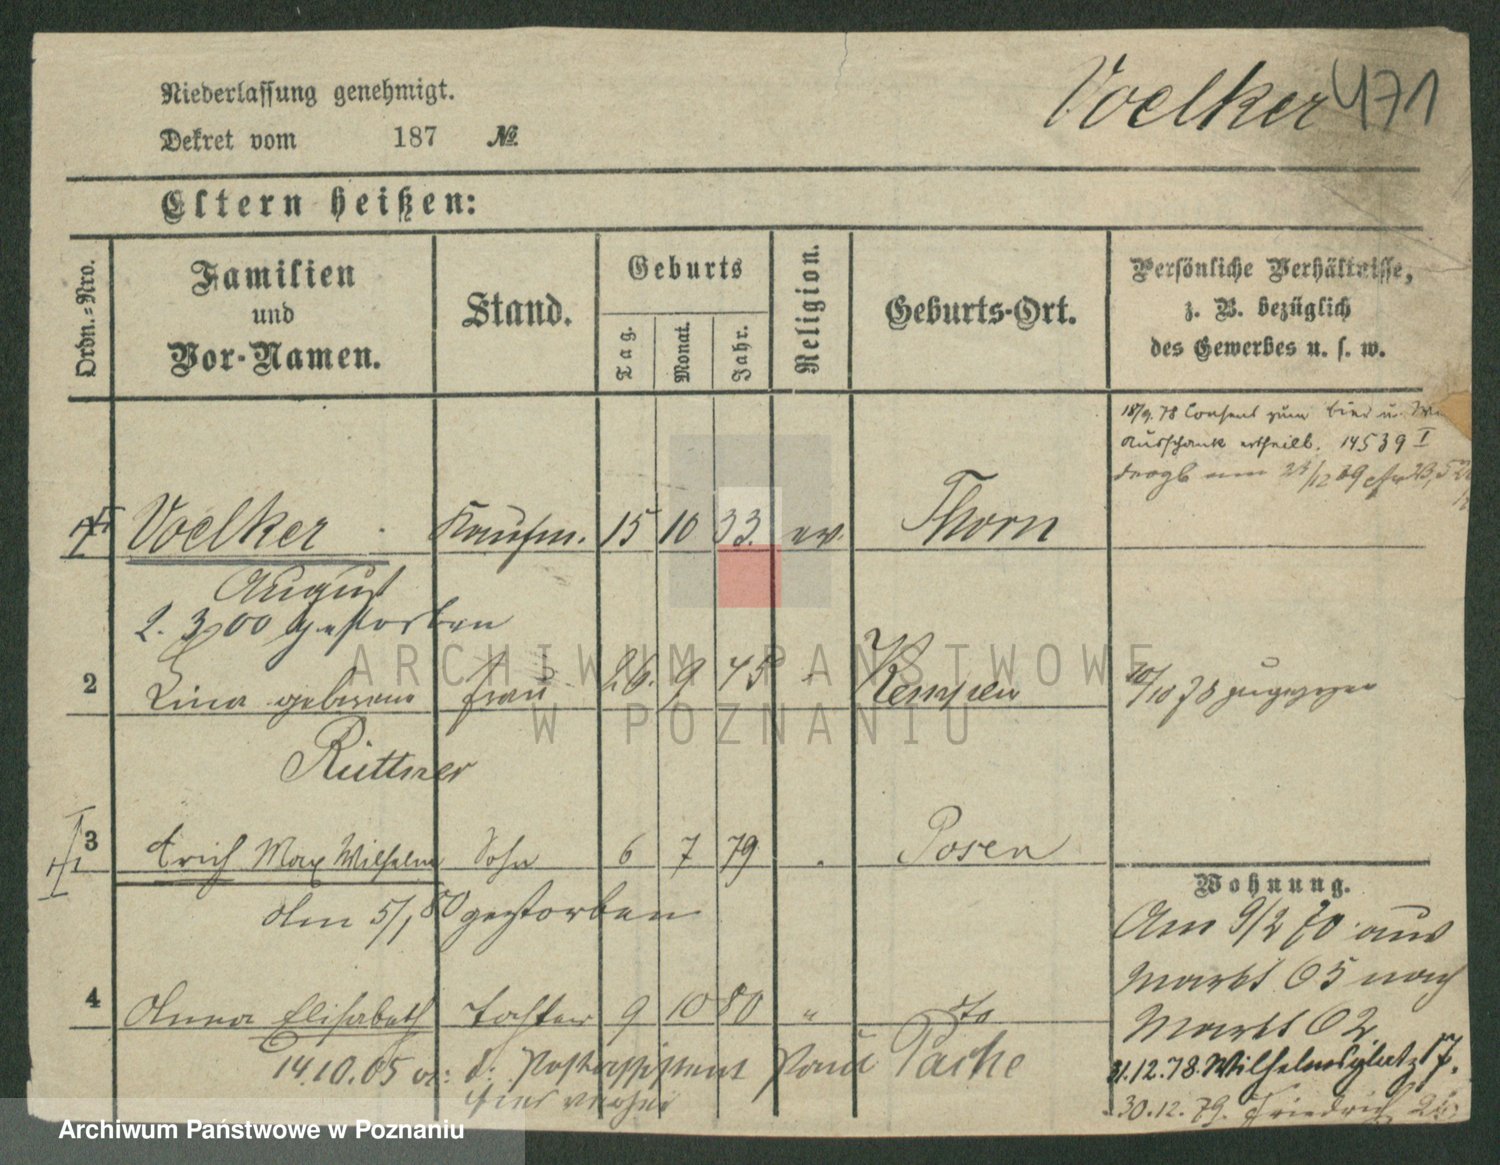 Niederlassung genehmigt.
Dekret vom 187 №
Voelker 471
Eltern heißen:
Ordn.-Nro.
Familien und Vor-Namen.
Stand.
Geburts
Tag.
Monat.
Jahr.
Religion.
Geburts-Ort.
Persönliche Verhältnisse, z. B. bezüglich des Gewerbes u. s. w.
18/9. 78 Consens zum Bier u.
Ausschank ertheilt. 14539 I
Voelker Kaufm. 15 10 33. ev. Thorn
August
2. 3 00 gestorben
2 Lina geborene Frau 26. 9 45 Kempen
10/10 78 zugezogen
Rüttner
3 Erich Max Wilhelm Sohn 6 7 79 Posen
Wohnung.
Am 5/1 80 gestorben
Am 9/2 70 aus
Markt 65 nach
Markt 62.
4 Anna Elisabeth Tochter 9 10 80 " do
14.10.05 d. Postassistent Paul Pache
31.12.78. Wilhelmsplatz 17.
hier
30.12.79. Friedrich
ARCHIWUM PAŃSTWOWE
W POZNANIU
Archiwum Państwowe w Poznaniu